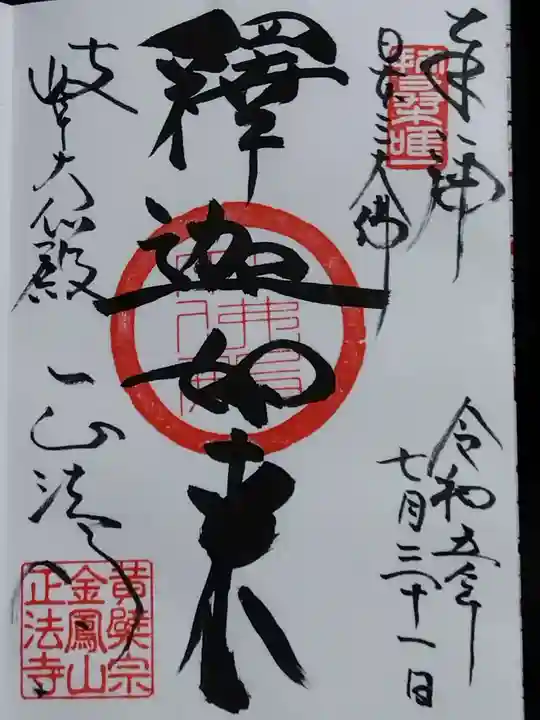 奉拝
日本三大佛
令和五年
七月三十一日
釋迦如来
岐阜大仏殿
正法寺
黄檗宗
金鳳山
正法寺